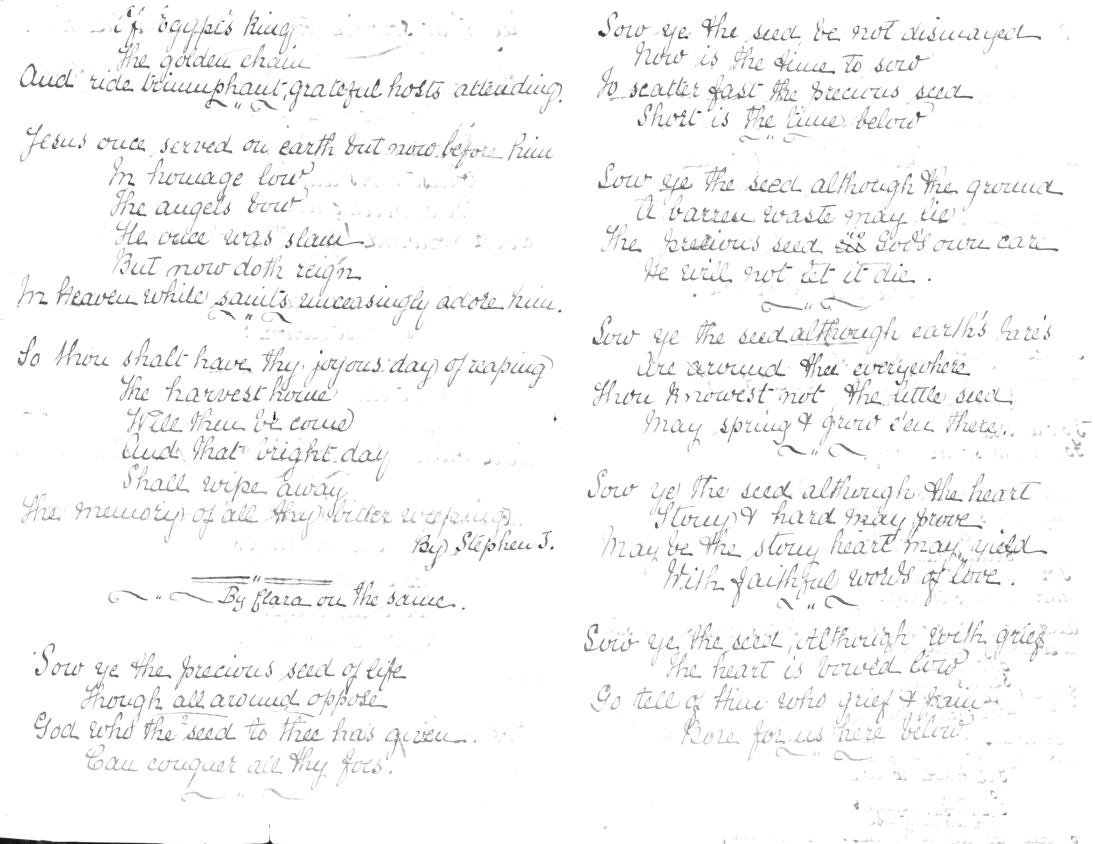 Of Egypt's King
The golden chain
And ride triumphant, grateful hosts attending.
Jesus once served on earth but now before him
In homage low
The angels bow
He once was slain
But now doth reign
In Heaven while saints unceasingly adore him.
So thou shalt have thy joyous day of reaping
The harvest home
Will then be come
And that bright day
Shall wipe away
The memory of all thy bitter weeping.
By Stephen J.
By Clara on the same.
Sow ye the precious seed of life
Though all around oppose
God who the seed to thee has given
Can conquer all thy foes.
Sow ye the seed be not dismayed
Now is the time to sow
To scatter fast the precious seed
Short is the time below
Sow ye the seed although the ground
A barren waste may lie
The precious seed God's own care
He will not let it die.
Sow ye the seed although earth's tare's
Are around thee everywhere
Thou knowest not the little seed
May spring & grow e'en there.
Sow ye the seed although the heart
Stony & hard may prove
May be the stony heart may yield
With faithful words of love.
Sow ye the seed, Although with grief
The heart is bowed low
Go tell of Him who grief & pain
Bore for us here below.